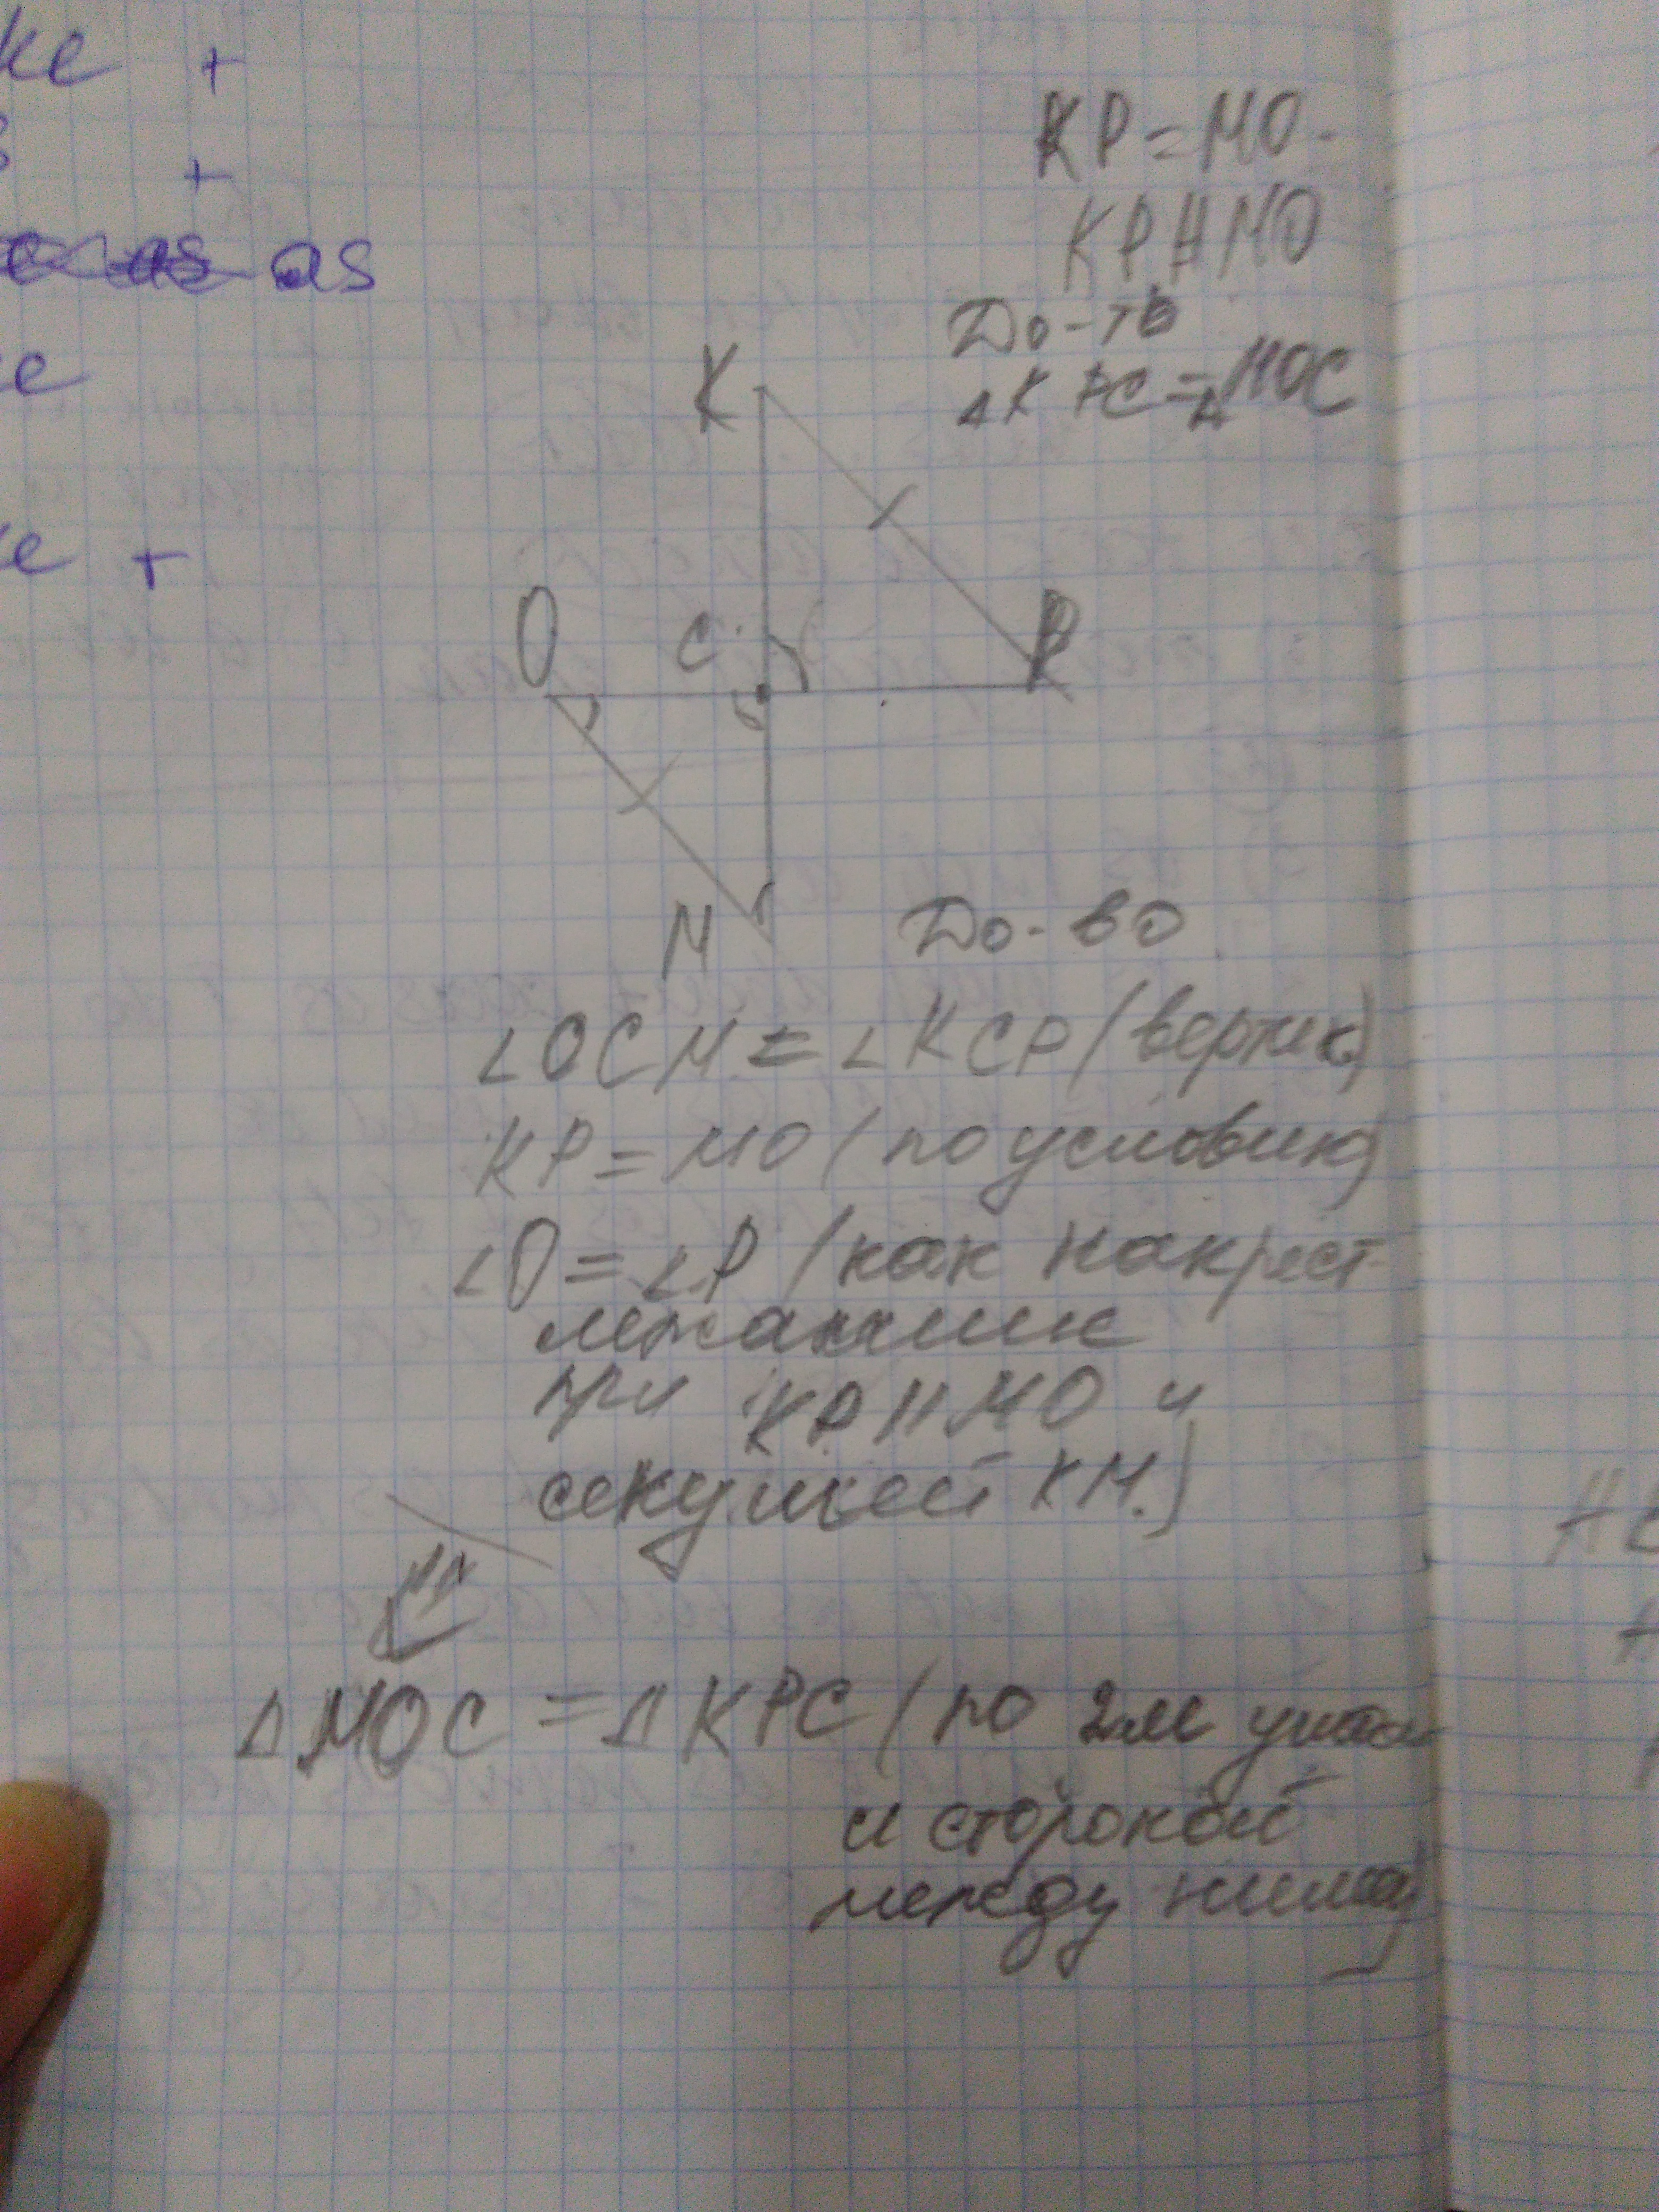 ke +
+
as as
e
e +
KP = MO.
KP ∥ MO
До-ть
△KPC = △MOC
K
O
C
P
M
До-во
∠OCM = ∠KCP (вертик.)
KP = MO (по условию)
∠O = ∠P (как накрест
лежащие
при KP ∥ MO и
секущей KM.)
△MOC = △KPC (по 2м углам
и стороной
между ними)